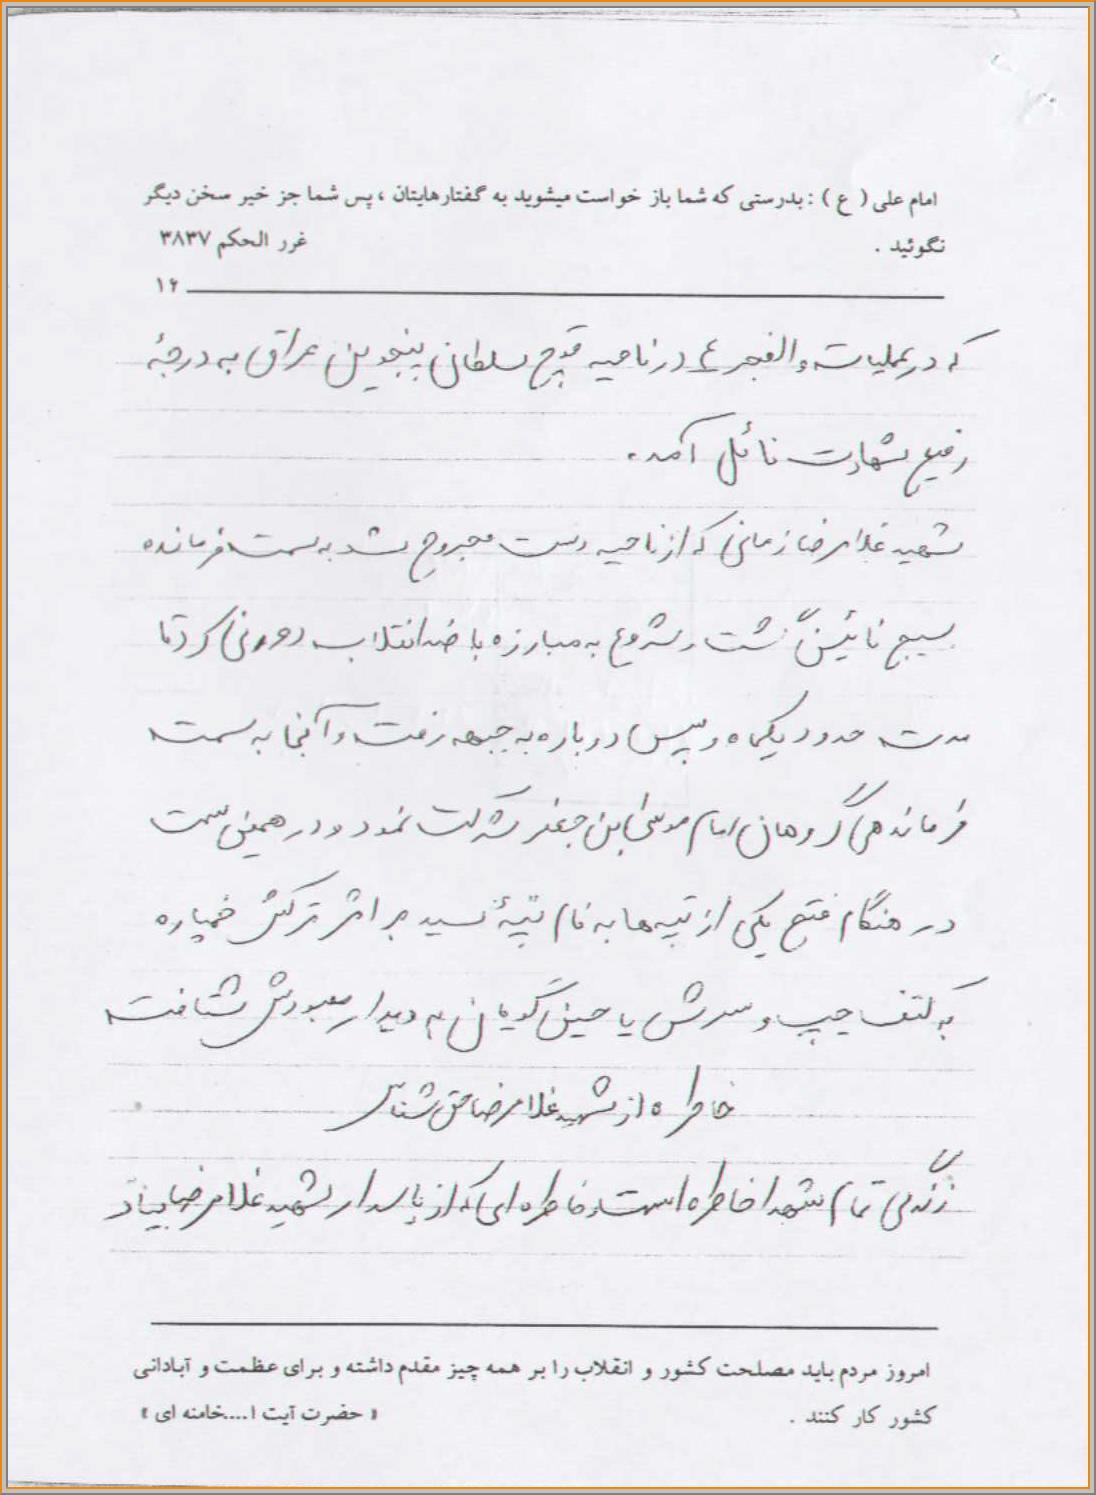 امام علی ( ع ) : بدرستی که شما باز خواست میشوید به گفتارهایتان ، پس شما جز خیر سخن دیگر
نگوئید . غرر الحکم ۳۸۳۷
۱۶
که در عملیات والفجر ٤ در ناحیه قوچ سلطان پنجوین عراق به درجهٔ
رفیع شهادت نائل آمد.
شهید غلامرضا زمانی که از ناحیه دست مجروح شد به سمت فرمانده
بسیج نائین گشت و شروع به مبارزه با ضد انقلاب درونی کرد تا
مدت حدود یکماه و سپس دوباره به جبهه رفت و آنجا به سمت
فرماندهی گروهان امام موسی ابن جعفر شرکت نمود و در همین سمت
در هنگام فتح یکی از تپه‌ها به نام تپهٔ بر اثر ترکش خمپاره
به کتف چپ و سرش یا حسین گویان به دیدار معبودش شتافت
خاطره از شهید غلامرضا حق شناس
زندگی تمام شهدا خاطره است و خاطره ای که از پاسدار شهید غلامرضا بیاد
امروز مردم باید مصلحت کشور و انقلاب را بر همه چیز مقدم داشته و برای عظمت و آبادانی
کشور کار کنند . « حضرت آیت ا....خامنه ای »